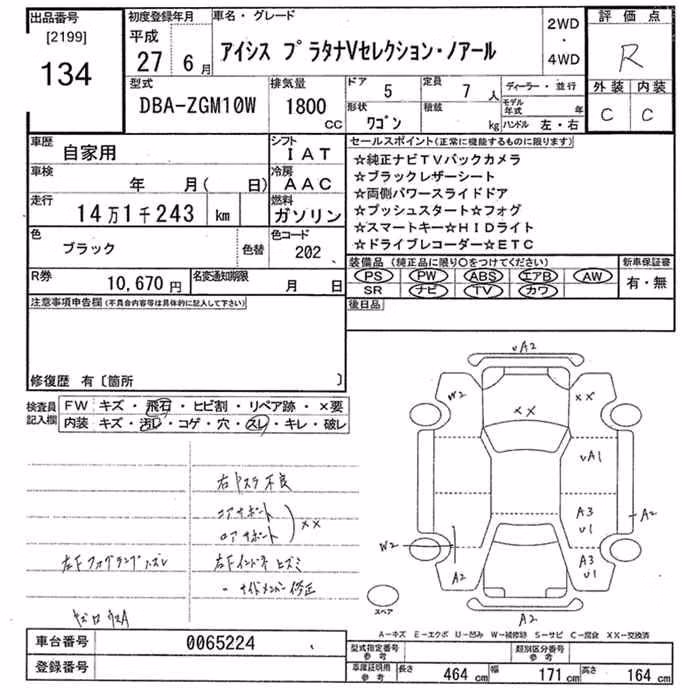 出品番号
[2199]
134
初度登録年月
平成
27 6月
車名・グレード
アイシス プラタナVセレクション・ノアール
2WD
・
4WD
評価点
R
外装 内装
C C
型式
DBA-ZGM10W
排気量
1800
CC
ドア
5
定員
7 人
形状
ワゴン
積載
kg
ディーラー・並行
モデル年式 年
ハンドル 左・右
車歴
自家用
シフト
IAT
車検
年 月( 日)
冷房
AAC
走行
14万1千243 km
燃料
ガソリン
色
ブラック
色替
色コード
202
R券
10,670 円
名変通知期限
月 日
セールスポイント(正常に機能するものに限ります)
☆純正ナビTVバックカメラ
☆ブラックレザーシート
☆両側パワースライドドア
☆プッシュスタート☆フォグ
☆スマートキー☆HIDライト
☆ドライブレコーダー☆ETC
装備品 (純正品に限り○をつけてください)
PS PW ABS エアB AW
SR ナビ TV カワ
新車保証書
有・無
注意事項申告欄(不具合内容等は具体的に記入して下さい)
後日品
修復歴 有〔箇所 〕
検査員記入欄
FW キズ・飛石・ヒビ割・リペア跡・×要
内装 キズ・汚レ・コゲ・穴・スレ・キレ・破レ
コアサポート
ロアサポート
××
左Fフォグランプハズレ
右Fインサイドヒズミ
サイドメンバー修正
UA2
W2
××
××
UA1
A2
A3
U1
W2
A2
A3
U1
A2
スペア
A-キズ E-エクボ U-凹み W-補修跡 S-サビ C-腐食 XX-交換済
車台番号
0065224
登録番号
型式指定番号
参考
類別区分番号
参考
車庫証明用
参考
長さ 464 cm
幅 171 cm
高さ 164 cm